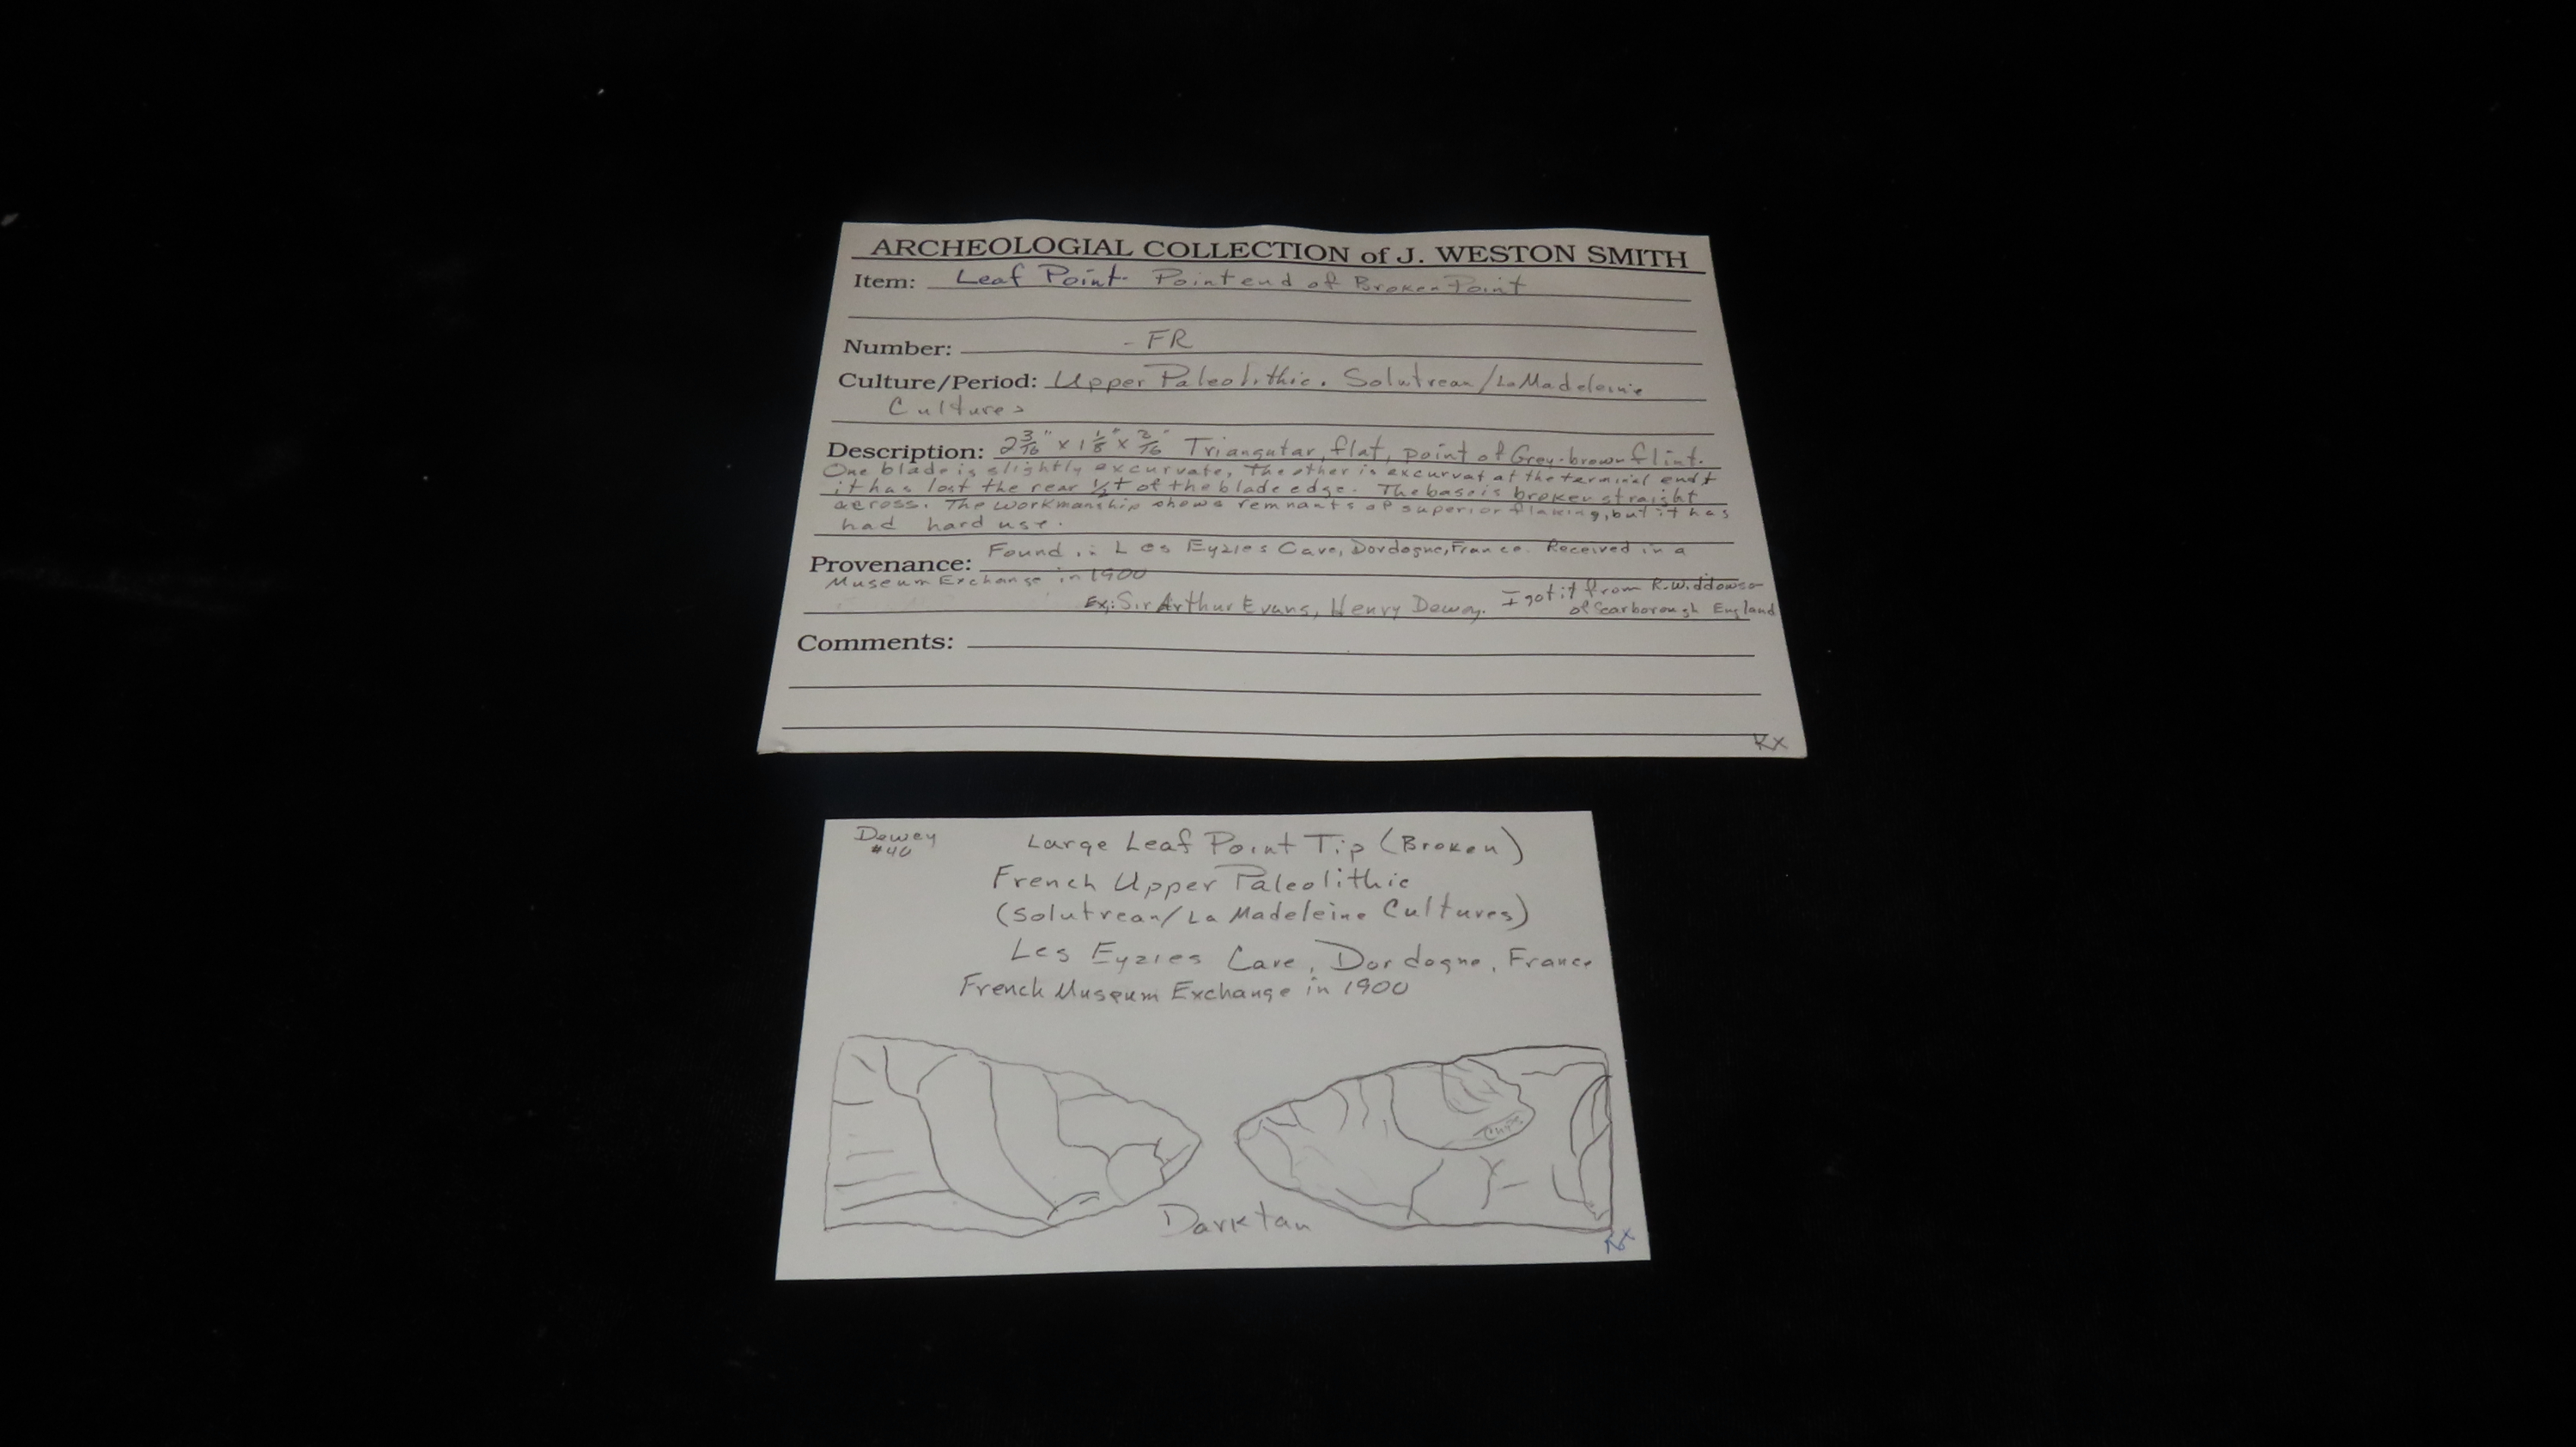 ARCHEOLOGIAL COLLECTION of J. WESTON SMITH
Item: Leaf Point- Point end of Broken Point
Number: - FR
Culture/Period: Upper Paleolithic. Solutrean/La Madeleine
Cultures
Description: 2 3/16" x 1 1/8" x 3/16" Triangular, flat, point of Grey-brown flint.
One blade is slightly excurvate, the other is excurvat at the terminal end &
it has lost the rear 1/2 + of the blade edge. The base is broken straight
across. The workmanship shows remnants of superior flaking, but it has
had hard use.
Provenance: Found in Les Eyzies Cave, Dordogne, France. Received in a
Museum Exchange in 1900
Ex: Sir Arthur Evans, Henry Dewey. I got it from R. Widdowson
of Scarborough England
Comments:
RX
Dewey
#40
Large Leaf Point Tip (Broken)
French Upper Paleolithic
(Solutrean/La Madeleine Cultures)
Les Eyzies Cave, Dordogne, France
French Museum Exchange in 1900
Dark tan
RX